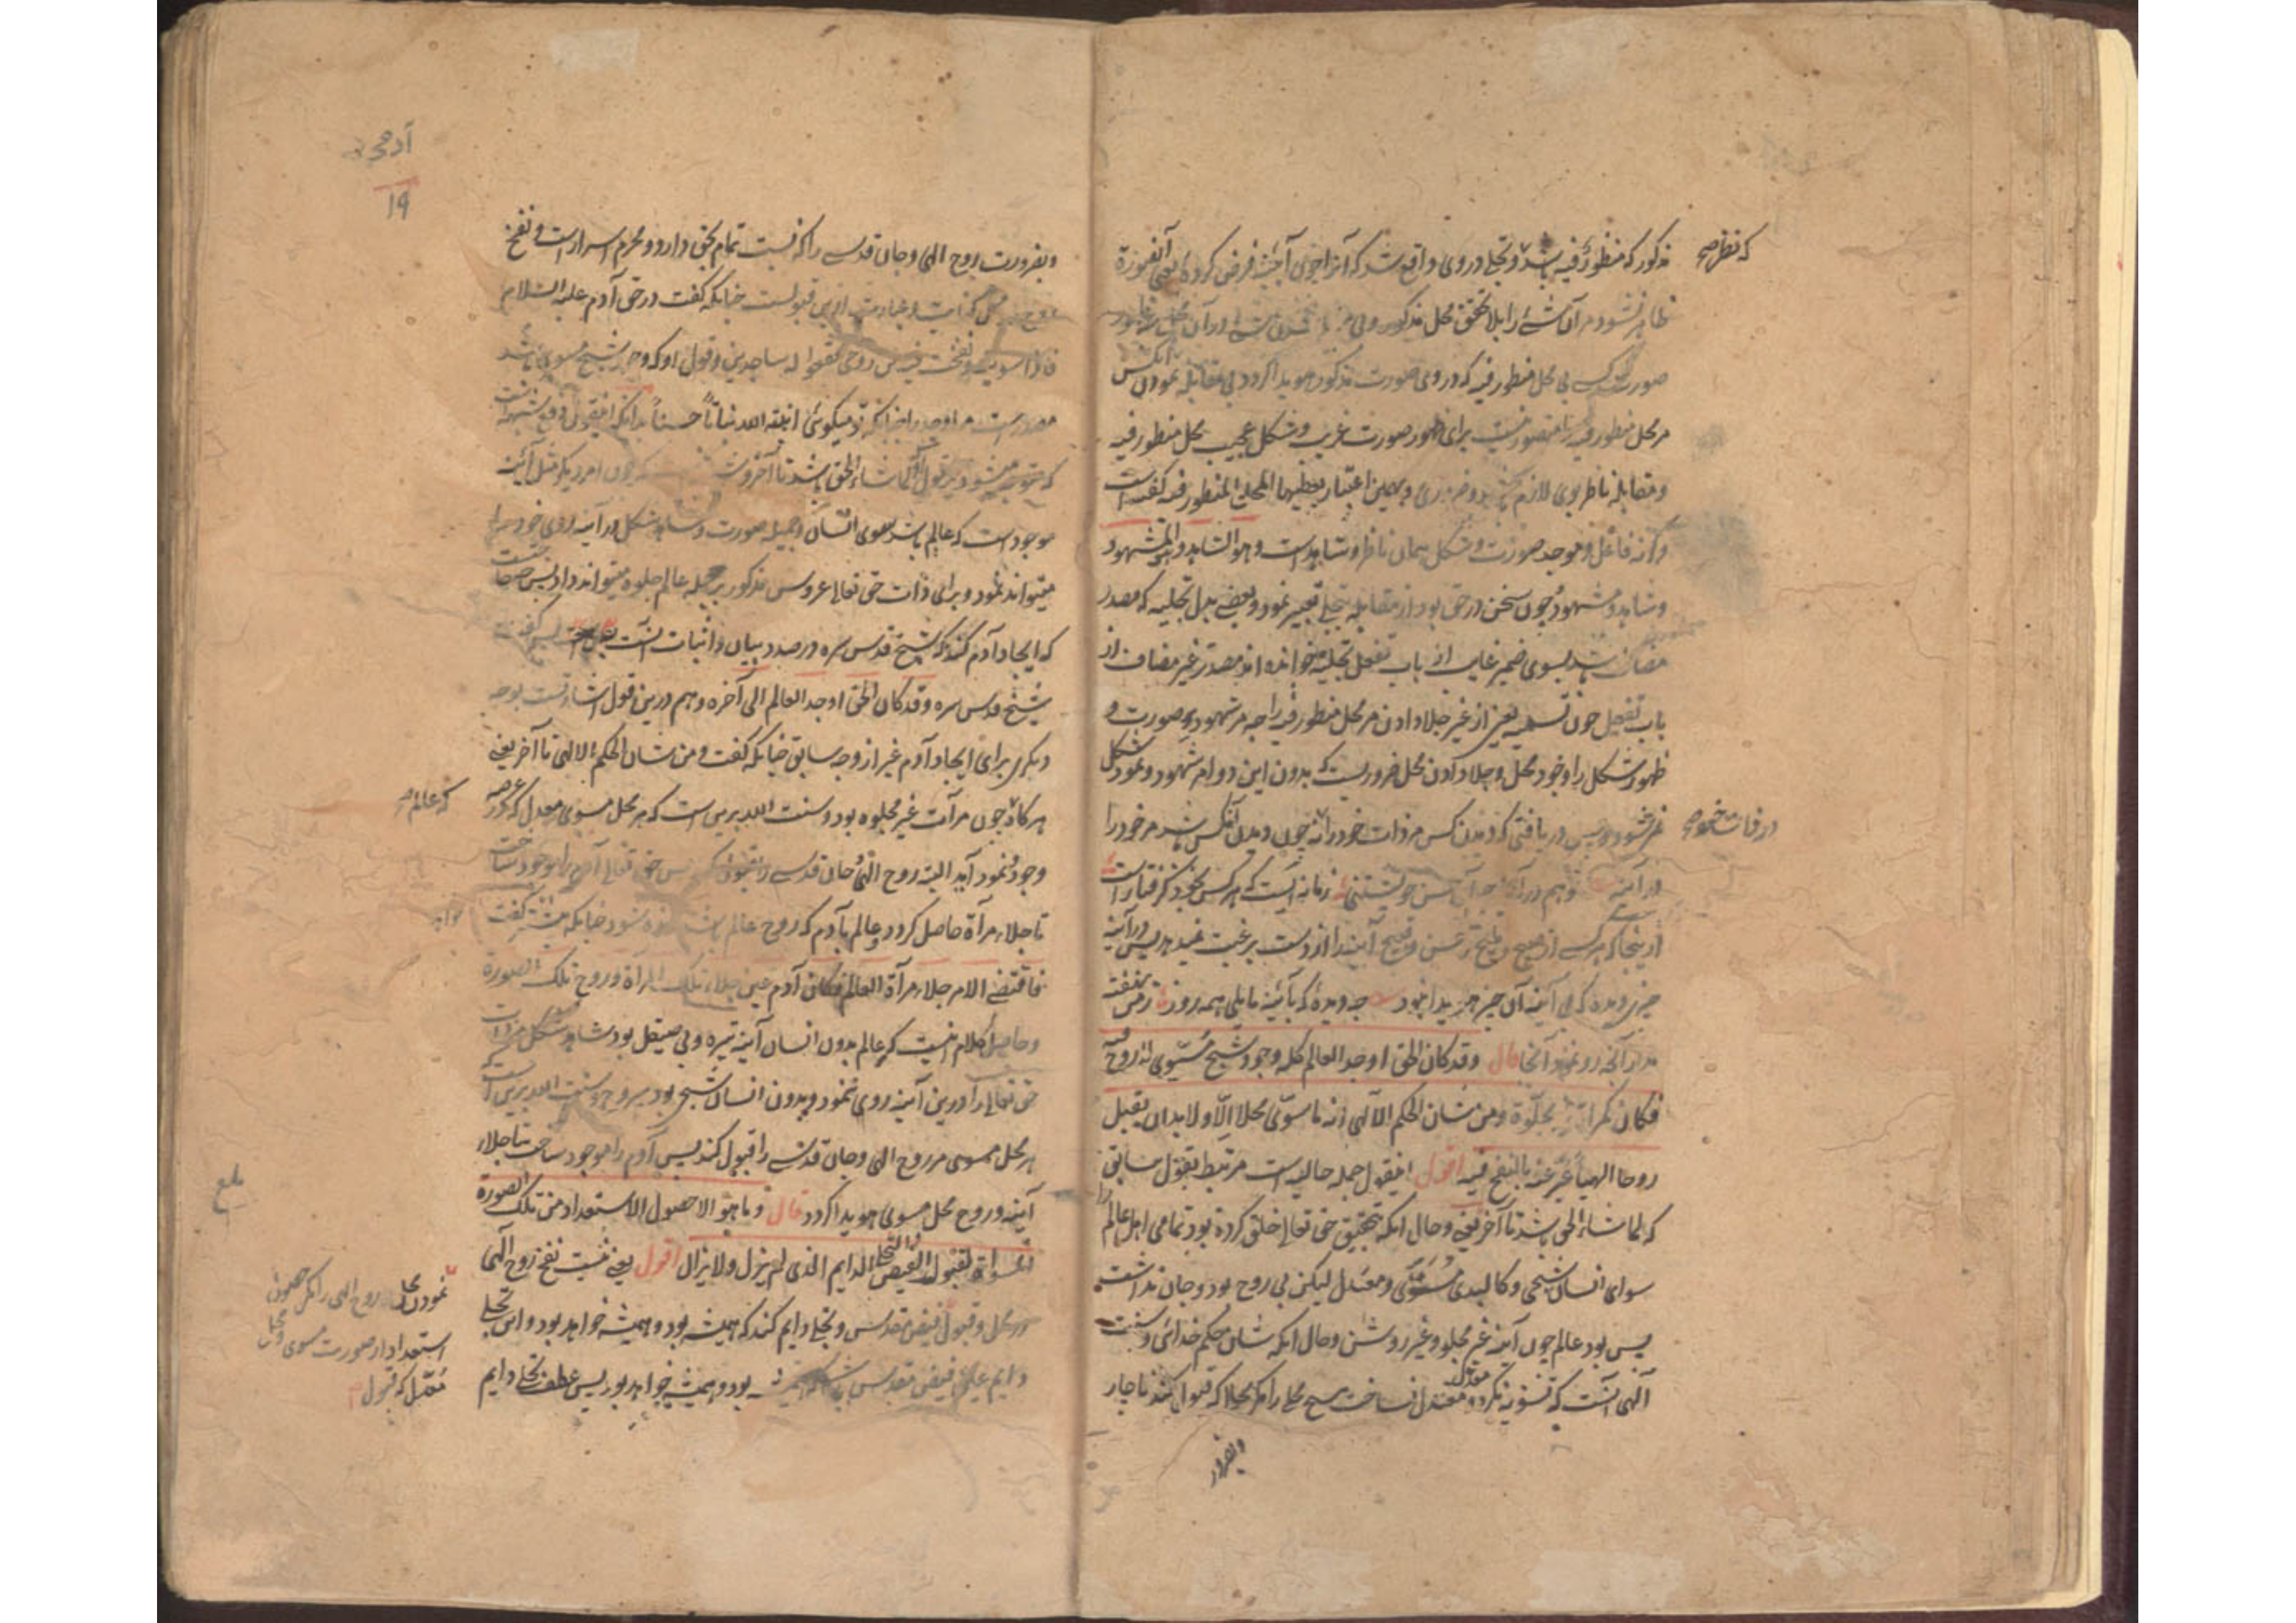 مذکور که منظور فیه باشد و تجلی در وی واقع شد که آنرا جوی آینه فرض کرده یعنی آنصورة
ظاهر نشود مر آن شی را بلا تحقق محل مذکور و بی
صورت بی محل منظور فیه که در وی صورت مذکور هویدا گردد بی مقابله نمودن آنکس
مر محل منظور فیه را متصور نیست برای ظهور صورت غریب و شکل عجیب محل منظور فیه
و مقابله ناظر بوی لازم و ضروری و بهمین اعتبار یعطیها المحل المنظور فیه گفته است
وگرنه فاعل و موجد صورت و شکل همان ناظر و شاهد است و هو الشاهد و المشهود
و شاهد و مشهود چون سخن در حق بود از مقابله بتجلی تعبیر نمود و بعضی بدل تجلیه که مصدر
مضاف باشد بسوی ضمیر غایب از باب تفعل تجلیه خوانده اند مصدر غیر مضاف از
باب تفعیل چون تسمیه یعنی از غیر جلا دادن مر محل منظور فیه را چه مر شهود صورت و
ظهور شکل را وجود محل و جلا دادن محل ضروریست که بدون این دو امر شهود و نمود شکل
نمیشود پس دریافتی که دیدن کس مر ذات خود را نه چون دیدن آنکس باشد مر خود را
در آینه و هم در زمانه ایست که هر کس بخود گرفتار است
از ینجا که هر کسی از صبیح و ملیح و حسن و قبیح آینه را از دست برغبت نمیدهد پس در آینه
چیزی دیده که بی آینه آن چیز هویدا نبود چه دیدهٔ که بآئینه مایلی همه روز ز من نهفته
مدار آنچه رو نمود آنجا قال وقد كان الحق اوجد العالم كله وجود شبح مسوی لا روح فیه
فكان كمرآة غیر مجلوّة ومن شان الحکم الالهی انه ما سوّی محلا الا ولا بد ان یقبل
روحا الهیا عبر عنه بالنفخ فیه اقول اینقول جمله حالیه است مرتبط بقول سابق
که لما شاء الحق باشد تا آخر یعنی و حال آنکه بتحقیق حق تعالی خلق کرده بود تمامی اهل عالم را
سوای انسان شبحی و کالبدی مسوّی و معتدل لیکن بی روح بود و جان نداشت
پس بود عالم چون آینه غیر مجلو و غیر روشن و حال آنکه شان حکم خدائی و سنت
الهی آنست که تسویه نکرد و معتدل نساخت هیچ محلی را مگر محلا که قبول کند ناچار
بضرور
که نظر صح
در ذات خود صح
آدمی
۱۹
و بضرورت روح الهی و جان قدسی را که نسبت تمام بحق دارد و محرم اسرار است و نفخ
روح کنایت و عبارت ازین قبولست چنانکه گفت در حق آدم علیه السلام
فاذا سویته ونفخت فیه من روحی فقعوا له ساجدین و قول او که وجود شبح مسوی باشد
مصدر است مر اوجد را چنانکه تو میگوئی انبته الله نباتاً حسناً بدانکه اینقول دفع شبهه است
که متوجه میشود بر قول او لما شاء الحق باشد تا آخر و که چون امر دیگر مثل آئینه
موجود است که عالم باشد سوی انسان و جمیله صورت و شاهد شکل در آینه روی خود را
میتواند نمود و برای ذات حق تعالی عروس مذکور بر جمله عالم جلوه میتواند داد پس چه حاجت
که ایجاد آدم کند که شیخ قدس سره در صدد بیان و اثبات آنست پس گفت
شیخ قدس سره وقد کان الحق اوجد العالم الی آخره و هم درین قول اشارتست بوجه
دیگر برای ایجاد آدم غیر از وجه سابق چنانکه گفت و من شان الحکم الالهی تا آخر یعنی
هر گاه چون مرآت غیر مجلوه بود و سنت الله برین است که هر محل مسوی معتدل که در عرصه
وجود نمود آید البته روح الهی و جان قدسی را قبول کند پس حق تعالی آدم را موجود ساخت
تا جلاء مرآة حاصل گردد و عالم بآدم که روح عالم باشد زنده شود چنانکه گفت
فاقتضی الامر جلاء مرآة العالم فکان آدم عین جلاء تلک المرآة وروح تلک الصورة
و حاصل کلام اینست که عالم بدون انسان آینه تیره و بی صیقل بود شاهد شکل مر ذات
حق تعالی را درین آینه روی ننمود و بدون انسان شبحی بود بی روح و سنت الله برین است که
هر محل مسوی مر روح الهی و جان قدسی را قبول کند پس آدم را موجود ساخت تا جلاء
آینه و روح محل مسوی هویدا گردد قال وما هو الا حصول الاستعداد من تلک الصورة
المسواة لقبول الفیض التجلی الدایم الذی لم یزل ولا یزال اقول یعنی نیست نفخ روح الهی
در محل و قبول فیض مقدس و تجلی دایم کند که همیشه بود و همیشه خواهد بود و این تجلی
دایم عین فیض مقدس بود و همیشه خواهد بود پس عطف تجلی دایم
که عالم صح
بلغ
نمودن محل روح الهی را مگر حصول
استعداد از صورت مسوی و محل
معتدل که قبول